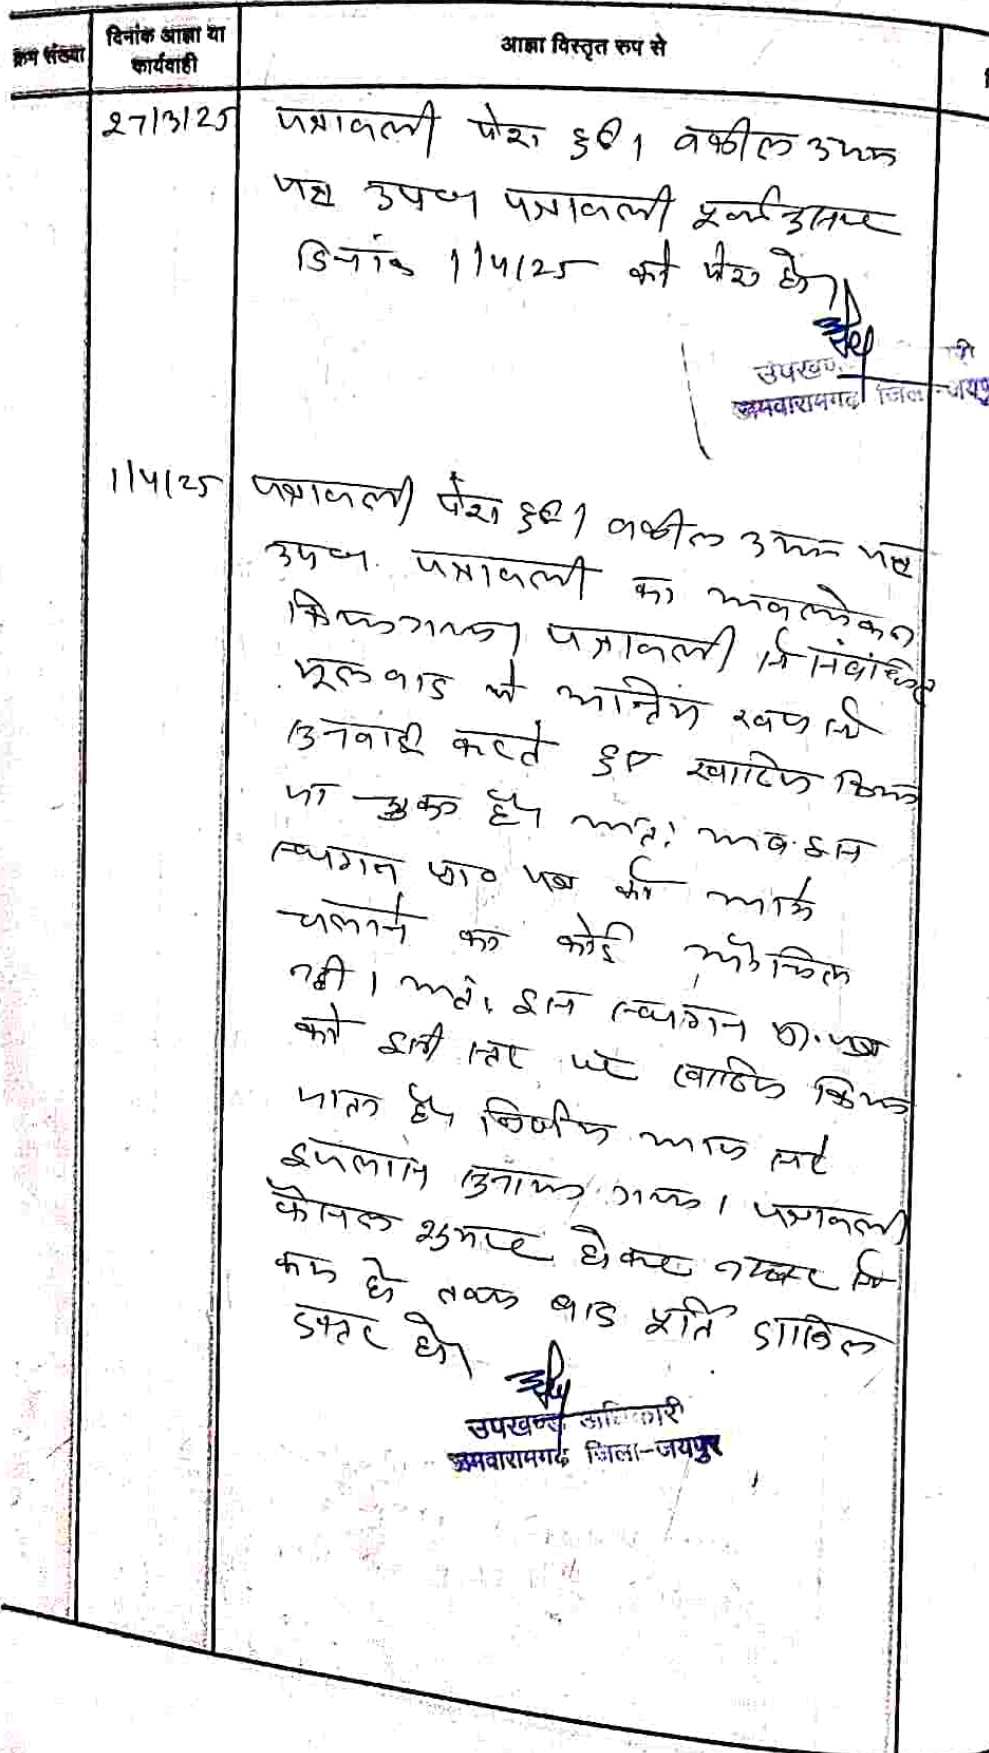 क्रम संख्या
दिनांक आज्ञा या
कार्यवाही
आज्ञा विस्तृत रुप से
27/3/25
पत्रावली पेश हुई। वकील उभय
पक्ष उप० पत्रावली पूर्वानुसार
दिनांक 1/4/25 को पेश हो।
उपखण्ड
जमवारामगढ़ जिला-जयपु
1/4/25
पत्रावली पेश हुई। वकील उभय पक्ष
उप०. पत्रावली का अवलोकन
किया गया। पत्रावली से संबंधित
मूल वाद में अन्तिम रूप से
सुनवाई करते हुए खारिज किया
जा चुका है। अतः अब इस
स्थगन प्रा० पत्र को आगे
चलाने का कोई औचित्य
नही। अतः इस स्थगन प्रा. पत्र
को इसी स्तर पर खारिज किया
जाता है। निर्णय आज सरे
इजलास सुनाया गया। पत्रावली
फैसल शुमार होकर नम्बर से
कम हो बाद पूर्ति दाखिल
दफ्तर हो।
उपखण्ड अधिकारी
जमवारामगढ़ जिला-जयपुर